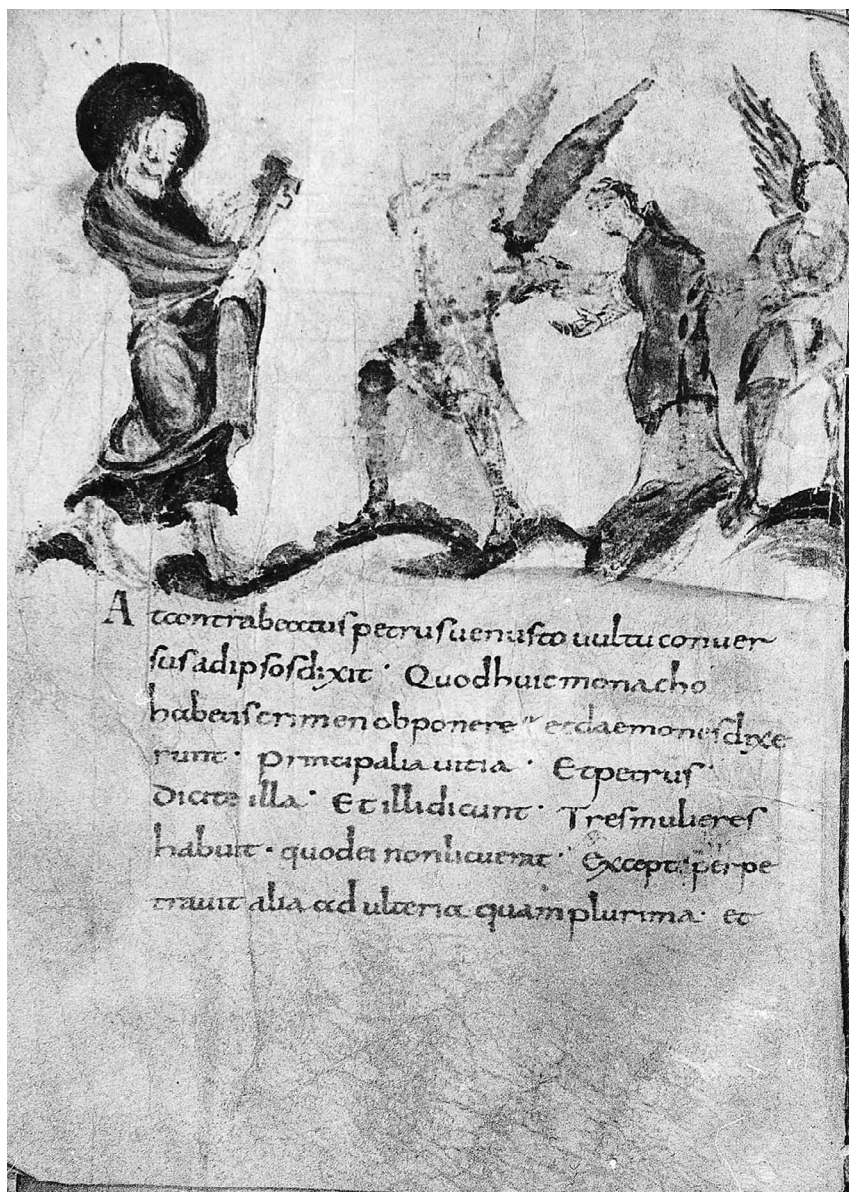 At contra beatus petrus uenusto uultu conuer
sus ad ipsos dixit · Quod huic monacho
habetis crimen obponere · et daemones dixe
runt · Principalia uitia · Et petrus ·
Dicite illa · Et illi dicunt · Tres mulieres
habuit · quod ei non licuerat · Except perpe
trauit alia adulteria quam plurima · et